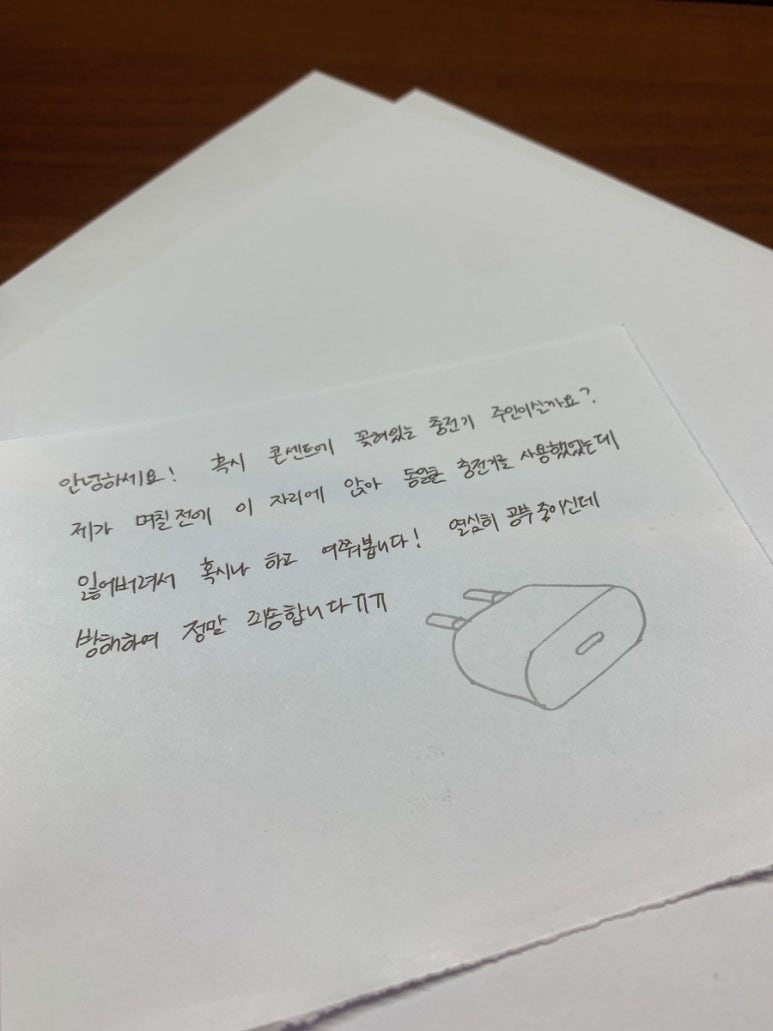 안녕하세요! 혹시 콘센트에 꽂혀있는 충전기 주인이신가요?
제가 며칠전에 이 자리에 앉아 동일한 충전기를 사용했었는데
잃어버려서 혹시나 하고 여쭤봅니다! 열심히 공부 중이신데
방해하여 정말 죄송합니다ㅠㅠ